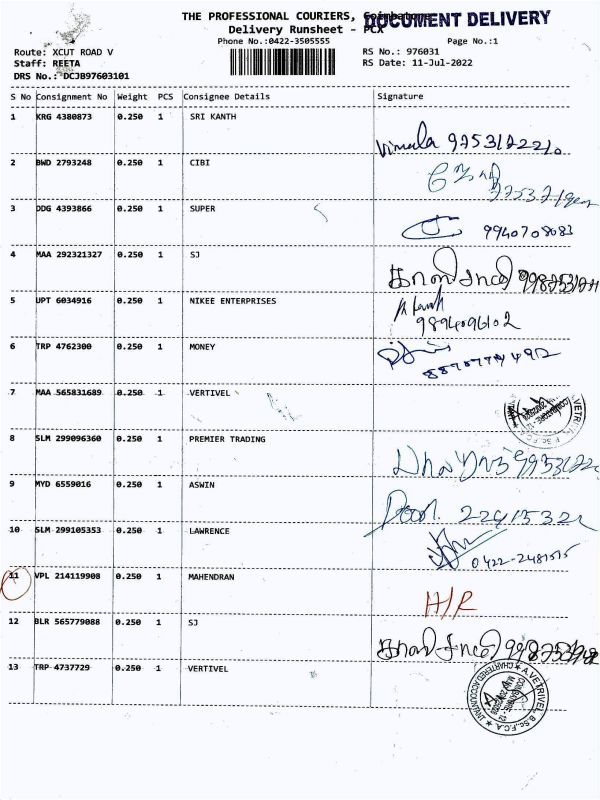 THE PROFESSIONAL COURIERS, Coimbatore
DOCUMENT DELIVERY
Delivery Runsheet - PCX
Phone No.:0422-3505555
Page No.:1
Route: XCUT ROAD V
RS No.: 976031
Staff: REETA
RS Date: 11-Jul-2022
DRS No.: DCJB97603101
S No Consignment No Weight PCS Consignee Details Signature
1 KRG 4380873 0.250 1 SRI KANTH
Vimala
2 BWD 2793248 0.250 1 CIBI
3 DDG 4393866 0.250 1 SUPER
9940708083
4 MAA 292321327 0.250 1 SJ
5 UPT 6034916 0.250 1 NIKEE ENTERPRISES
9894096102
6 TRP 4762300 0.250 1 MONEY
7 MAA 565831689 0.250 1 VERTIVEL
8 SLM 299096360 0.250 1 PREMIER TRADING
9 MYD 6559016 0.250 1 ASWIN
10 SLM 299105353 0.250 1 LAWRENCE
0422-2481515
11 VPL 214119908 0.250 1 MAHENDRAN
H/R
12 BLR 565779088 0.250 1 SJ
13 TRP 4737729 0.250 1 VERTIVEL
A.VETRIVEL, B.Sc,F.C.A.
CHARTERED ACCOUNTANT